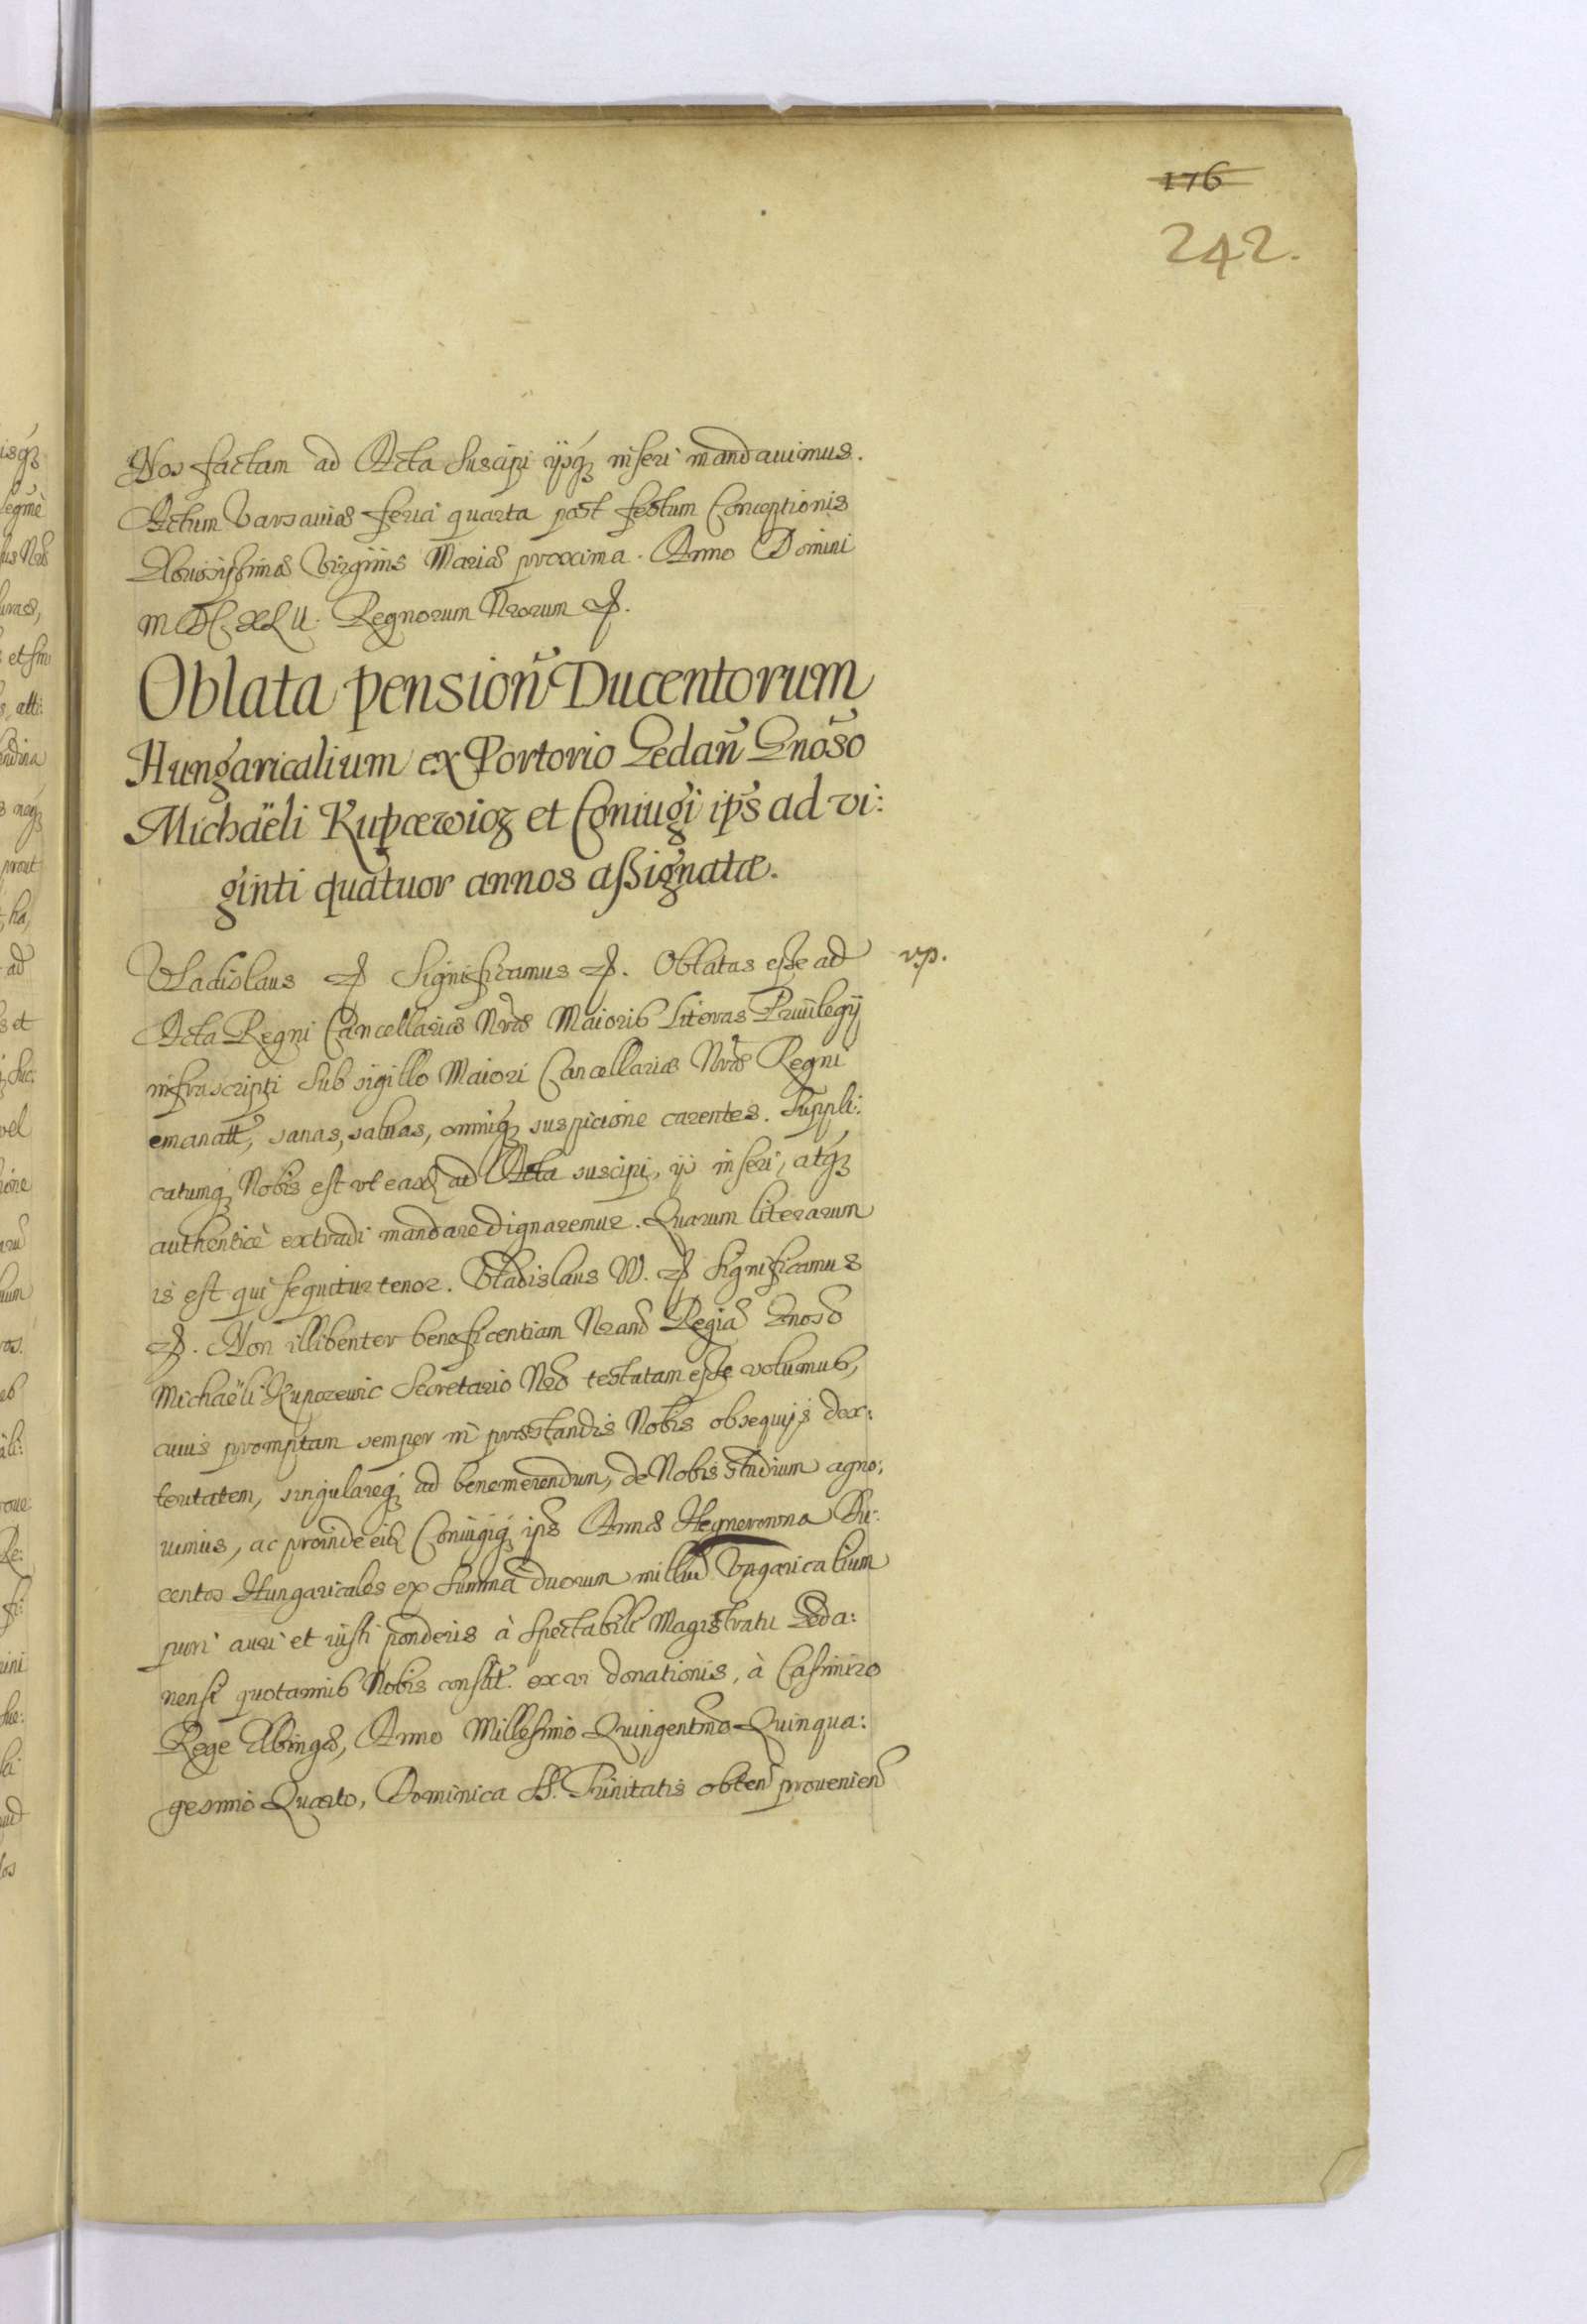 176
242.
Nos factam ad Acta suscipi ijsq₃ inseri mandauimus.
Actum Varsauiæ feria quarta post festum Conceptionis
Virginis Mariæ proxima. Anno Domini
MDCXLII. Regnorum Nrorum
Oblata pension̄ Ducentorum
Hungaricalium ex Portorio Gedan̄ Gnoso
Michaëli et Coniugi ips ad vi:
ginti quatuor annos aßignatæ.
Vladislaus Significamus. Oblatas esse ad
vp.
Acta Regni Cancellariæ Nræ Maioris Literas Priuilegij
infrascripti sub sigillo Maiori Cancellariæ Nræ Regni
emanatt, sanas, saluas, omniq₃ suspicione carentes. Suppli:
catumq₃ Nobis est vt eas ad Acta suscipi, ijs inseri, atq₃
authenticè extradi mandare dignaremur. Quarum literarum
is est qui sequitur tenor. Vladislaus IV. Significamus
Non illibenter beneficentiam Nram Regiā Gnoso
Michaëli Secretario Nro testatam esse volumus,
cuius promptam semper in præstandis Nobis obsequijs dex:
teritatem, singulareq₃ ad benemerendum, de Nobis studium agno:
uimus, ac proinde eid Coniugiq₃ ips Annæ Du:
centos Hungaricales ex summa duorum milliu Vngaricalium
puri auri et iusti ponderis à Spectabili Magistratu Geda:
nensi quotannis Nobis constit. ex vi donationis, à Casimiro
Rege Elbingæ, Anno Millesimo Quingentmo Quinqua:
gesimo Quarto, Dominica SS. Trinitatis obten prouenien